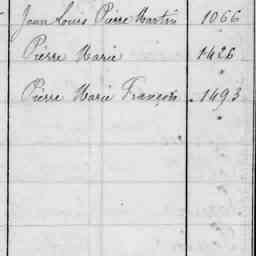 Jean Louis Pierre Martin 1066
Pierre Marie 1426
Pierre Marie François 1493